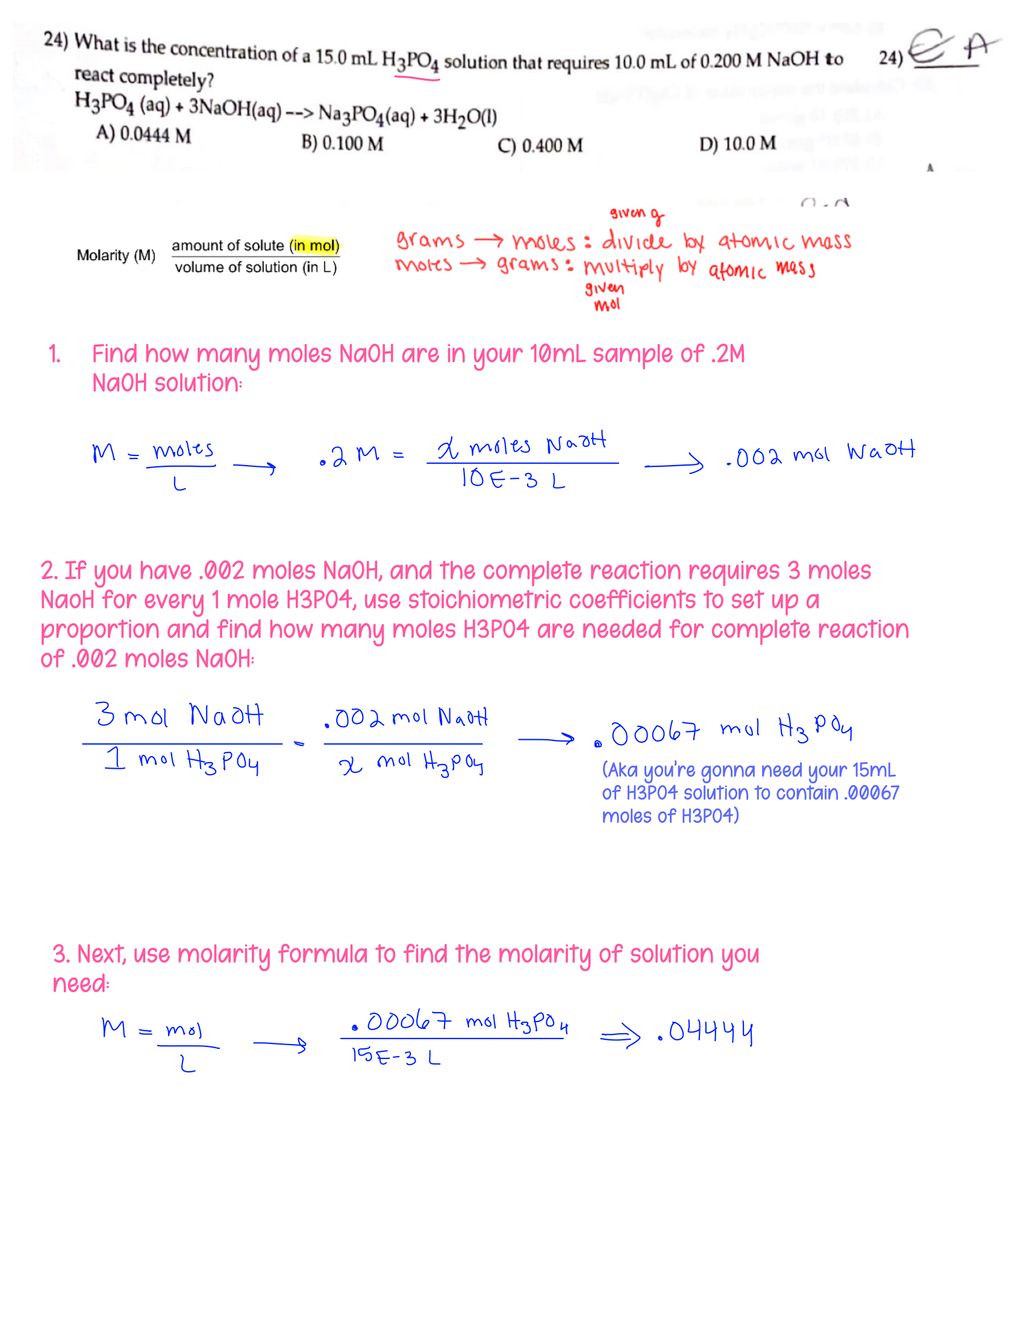 24) What is the concentration of a 15.0 mL H3PO4 solution that requires 10.0 mL of 0.200 M NaOH to 24) C A
react completely?
H3PO4 (aq) + 3NaOH(aq) --> Na3PO4(aq) + 3H2O(l)
A) 0.0444 M B) 0.100 M C) 0.400 M D) 10.0 M
A
given g
Molarity (M) amount of solute (in mol)
volume of solution (in L)
grams → moles: divide by atomic mass
moles → grams: multiply by atomic mass
given
mol
1. Find how many moles NaOH are in your 10mL sample of .2M
NaOH solution:
M = moles / L → .2 M = x moles NaOH / 10E-3 L → .002 mol NaOH
2. If you have .002 moles NaOH, and the complete reaction requires 3 moles
NaoH for every 1 mole H3PO4, use stoichiometric coefficients to set up a
proportion and find how many moles H3PO4 are needed for complete reaction
of .002 moles NaOH:
3 mol NaOH / 1 mol H3PO4 = .002 mol NaOH / x mol H3PO4 → .00067 mol H3PO4
(Aka you're gonna need your 15mL
of H3PO4 solution to contain .00067
moles of H3PO4)
3. Next, use molarity formula to find the molarity of solution you
need:
M = mol / L → .00067 mol H3PO4 / 15E-3 L ⇒ .04444